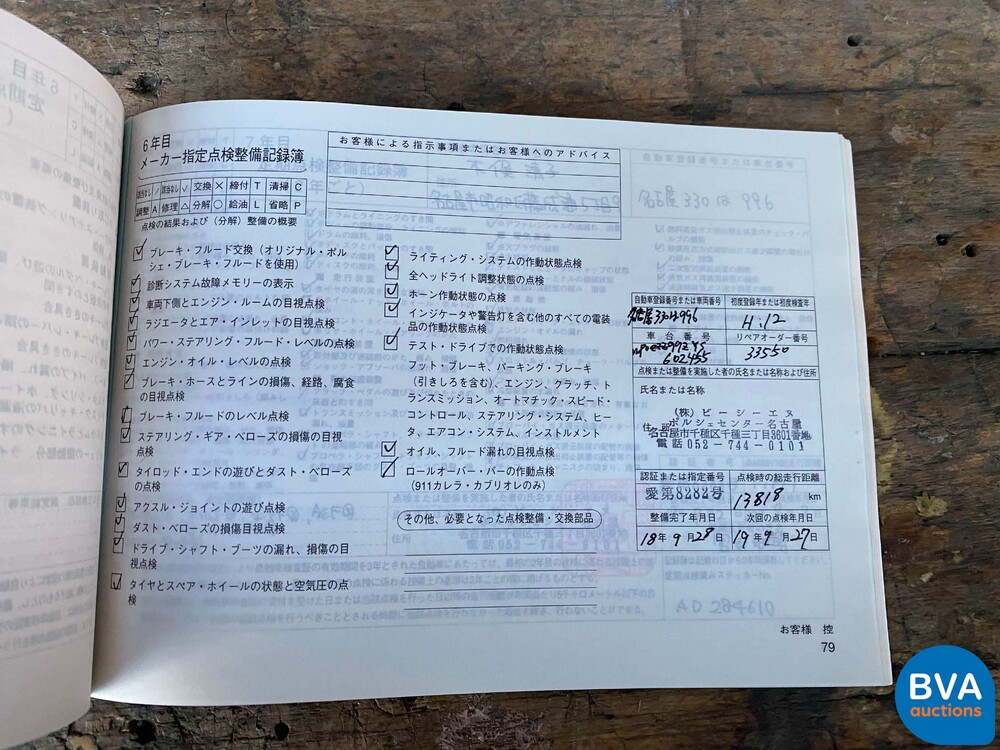 6年目
メーカー指定点検整備記録簿
交換 × 締付 T 清掃 C
調整 A 修理 △ 分解 ○ 給油 L 省略 P
点検の結果および(分解)整備の概要
ブレーキ・フルード交換(オリジナル・ポル
シェ・ブレーキ・フルードを使用)
診断システム故障メモリーの表示
車両下側とエンジン・ルームの目視点検
ラジエータとエア・インレットの目視点検
パワー・ステアリング・フルード・レベルの点検
エンジン・オイル・レベルの点検
ブレーキ・ホースとラインの損傷、経路、腐食
の目視点検
ブレーキ・フルードのレベル点検
ステアリング・ギア・ベローズの損傷の目視
点検
タイロッド・エンドの遊びとダスト・ベローズ
の点検
アクスル・ジョイントの遊び点検
ダスト・ベローズの損傷目視点検
ドライブ・シャフト・ブーツの漏れ、損傷の目
視点検
タイヤとスペア・ホイールの状態と空気圧の点
検
お客様による指示事項またはお客様へのアドバイス
ライティング・システムの作動状態点検
全ヘッドライト調整状態の点検
ホーン作動状態の点検
インジケータや警告灯を含む他のすべての電装
品の作動状態点検
テスト・ドライブでの作動状態点検
フット・ブレーキ、パーキング・ブレーキ
(引きしろを含む)、エンジン、クラッチ、ト
ランスミッション、オートマチック・スピード・
コントロール、ステアリング・システム、ヒー
タ、エアコン・システム、インストルメント
オイル、フルード漏れの目視点検
ロールオーバー・バーの作動点検
(911カレラ・カブリオレのみ)
その他、必要となった点検整備・交換部品
自動車登録番号または車両番号 初度登録年または初度検査年
名古屋330は996 H.12
車台番号 リペアオーダー番号
602455 33550
点検または整備を実施した者の氏名または名称および住所
氏名または名称
(株)ピーシーエヌ
住所 ポルシェセンター名古屋
名古屋市千種区千種三丁目3601番地
電話 052-744-0101
認証または指定番号 点検時の総走行距離
愛第8282号 13818 km
整備完了年月日 次回の点検年月日
18年9月28日 19年9月27日
お客様 控
79
BVA
auctions